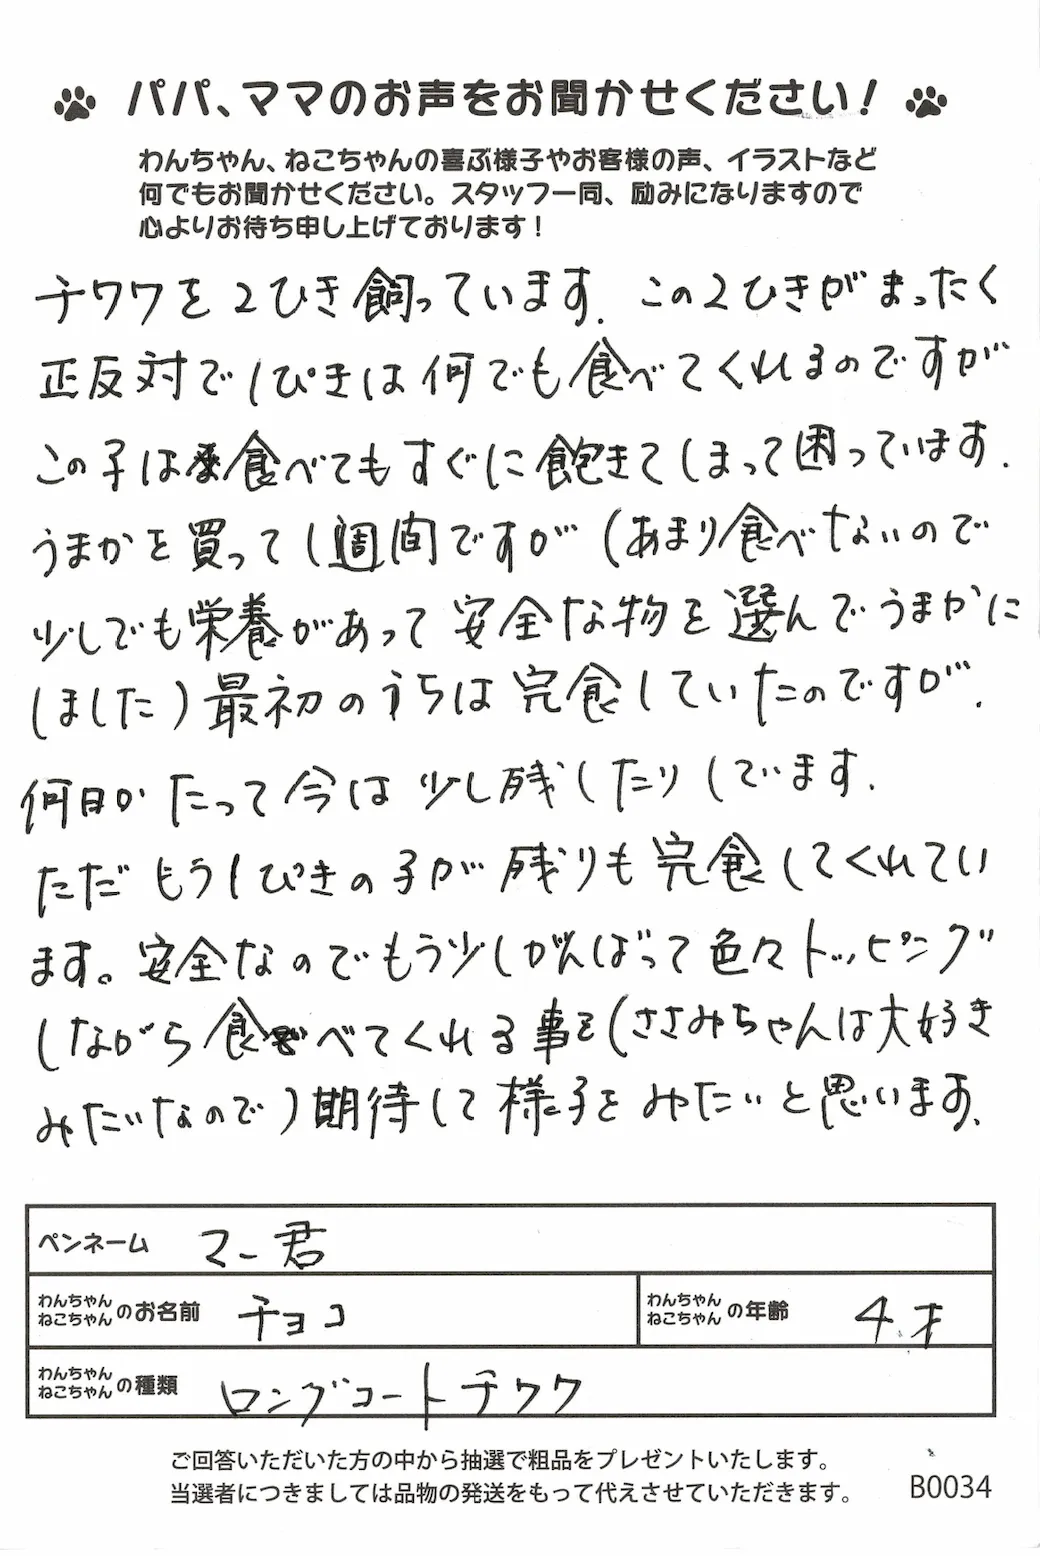 パパ、ママのお声をお聞かせください！
わんちゃん、ねこちゃんの喜ぶ様子やお客様の声、イラストなど
何でもお聞かせください。スタッフ一同、励みになりますので
心よりお待ち申し上げております！
チワワを2ひき飼っています。この2ひきがまったく
正反対で1ぴきは何でも食べてくれるのですが
この子は食べてもすぐに飽きてしまって困っています。
うまかを買って1週間ですが（あまり食べないので
少しでも栄養があって安全な物を選んでうまかに
しました）最初のうちは完食していたのですが、
何日かたって今は少し残したりしています。
ただもう1ぴきの子が残りも完食してくれてい
ます。安全なのでもう少しがんばって色々トッピング
しながら食べてくれる事を（ささみちゃんは大好き
みたいなので）期待して様子をみたいと思います。
ペンネーム マー君
わんちゃん ねこちゃん のお名前 チョコ わんちゃん ねこちゃん の年齢 4才
わんちゃん ねこちゃん の種類 ロングコートチワワ
ご回答いただいた方の中から抽選で粗品をプレゼントいたします。
当選者につきましては品物の発送をもって代えさせていただきます。 B0034